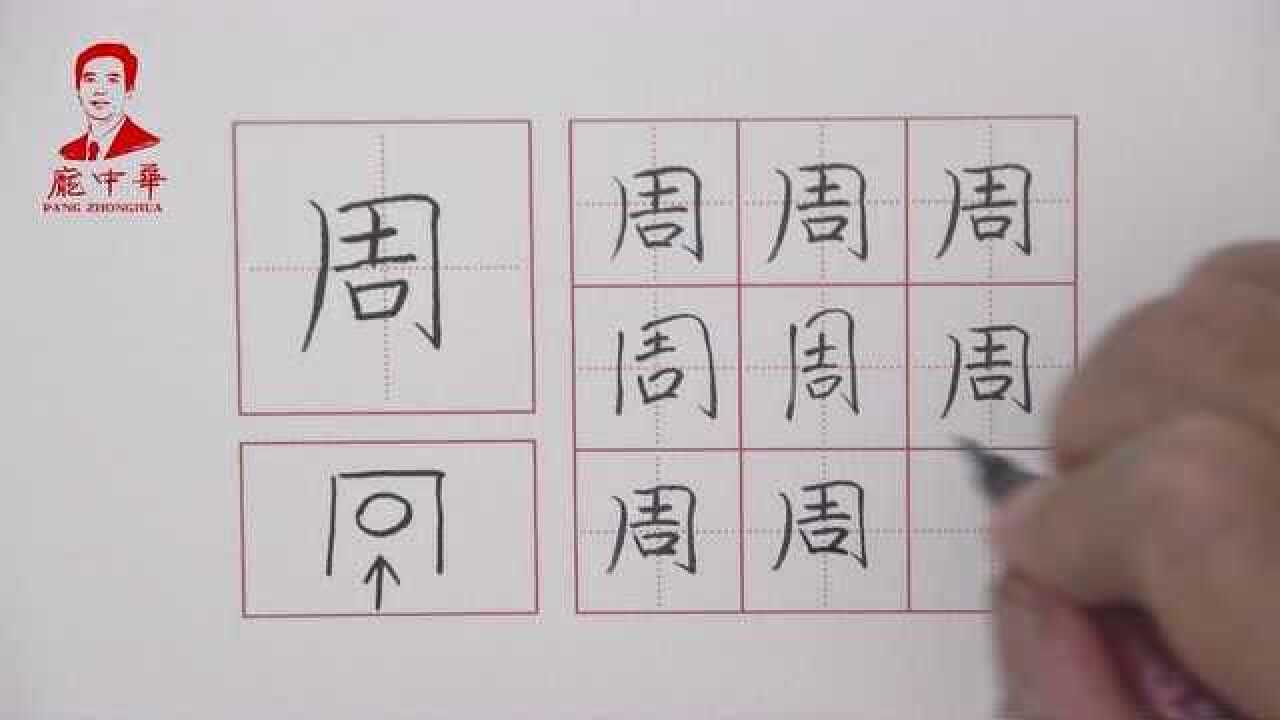 龐中華
PANG ZHONGHUA
周
周 周 周
周 周 周
周 周